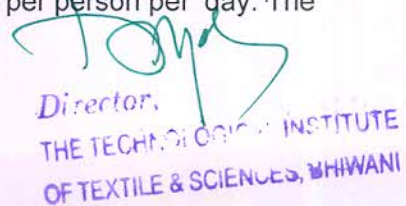 per person per day. The
Director,
THE TECHNOLOGICAL INSTITUTE
OF TEXTILE & SCIENCES, BHIWANI